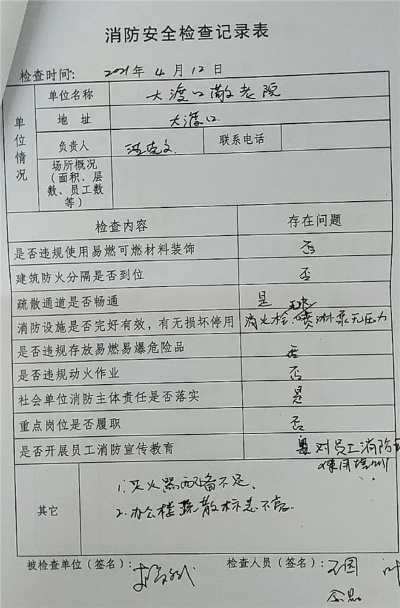 消防安全检查记录表
检查时间: 2021年4月12日
单位情况
单位名称 大渡口敬老院
地 址 大渡口
负责人 联系电话
场所概况（面积、层数、员工数等）
检查内容 存在问题
是否违规使用易燃可燃材料装饰 否
建筑防火分隔是否到位 否
疏散通道是否畅通 是
消防设施是否完好有效，有无损坏停用 消火栓、喷淋泵无压力
是否违规存放易燃易爆危险品 否
是否违规动火作业 否
社会单位消防主体责任是否落实 是
重点岗位是否履职 否
是否开展员工消防宣传教育 对员工消防
使用培训
其它
1. 灭火器配备不足.
2. 办公楼疏散标志不
被检查单位（签名）： 检查人员（签名）：